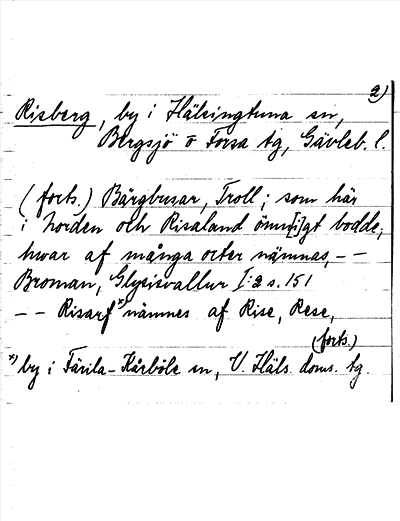 2)
Risberg, by i Hälsingtuna sn,
Bergsjö o Forsa tg, Gävleb. l.
(forts.) Bärgbusar, Troll; som här
i Norden och Risaland ömn[i]gt bodde,
hwar af många orter nämnas, – –
Broman, Glysisvallur I:2 s. 151
– – Risarf x) nämnes af Rise, Rese,
(forts.)
x) by i Färila-Kårböle sn, V. Häls. doms. tg.